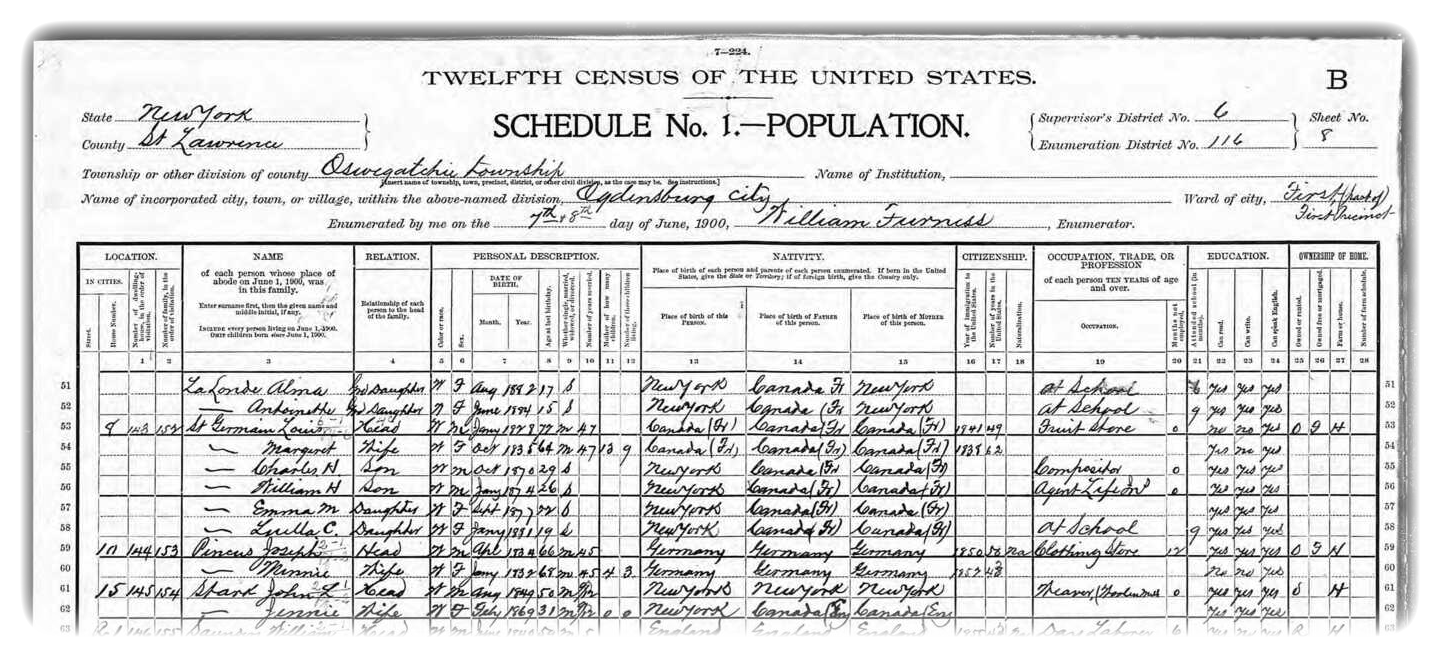 7—224.
TWELFTH CENSUS OF THE UNITED STATES.
B
State New York
County St Lawrence
SCHEDULE No. 1.—POPULATION.
Supervisor's District No. 6
Enumeration District No. 116
Sheet No. 8
Township or other division of county Oswegatchie township
[Insert name of township, town, precinct, district, or other civil division, as the case may be. See instructions.]
Name of Institution,
Name of incorporated city, town, or village, within the above-named division, Ogdensburg city
Ward of city, First, (part of) First Precinct
Enumerated by me on the 7th & 8th day of June, 1900, William Furniss, Enumerator.
LOCATION. NAME RELATION. PERSONAL DESCRIPTION. NATIVITY. CITIZENSHIP. OCCUPATION, TRADE, OR PROFESSION EDUCATION. OWNERSHIP OF HOME.
IN CITIES. Street. House Number. Number of dwelling-house, in the order of visitation. Number of family, in the order of visitation.
of each person whose place of abode on June 1, 1900, was in this family.
Enter surname first, then the given name and middle initial, if any.
INCLUDE every person living on June 1, 1900. OMIT children born since June 1, 1900.
Relationship of each person to the head of the family.
Color or race. Sex. DATE OF BIRTH. Month. Year. Age at last birthday. Whether single, married, widowed, or divorced. Number of years married. Mother of how many children. Number of these children living.
Place of birth of each person and parents of each person enumerated. If born in the United States, give the State or Territory; if of foreign birth, give the Country only.
Place of birth of this PERSON. Place of birth of FATHER of this person. Place of birth of MOTHER of this person.
Year of immigration to the United States. Number of years in the United States. Naturalization.
of each person TEN YEARS of age and over.
OCCUPATION. Months not employed.
Attended school (in months). Can read. Can write. Can speak English.
Owned or rented. Owned free or mortgaged. Farm or house. Number of farm schedule.
1 2 3 4 5 6 7 8 9 10 11 12 13 14 15 16 17 18 19 20 21 22 23 24 25 26 27 28
51 LaLonde Alma Gd Daughter W F Aug 1882 17 S New York Canada Fr New York at School Yes Yes Yes 51
52 — Antoinette Gd Daughter W F June 1884 15 S New York Canada (Fr New York at School 9 Yes Yes Yes 52
53 9 143 152 St Germain Louis Head W M Jany 1828 72 M 47 Canada (Fr) Canada (Fr) Canada (Fr) 1841 49 Fruit Store 0 no no Yes O F H 53
54 — Margaret Wife W F Oct 1835 64 M 47 13 9 Canada (Fr) Canada (Fr) Canada (Fr) 1838 62 Yes no Yes 54
55 — Charles H Son W M Oct 1870 29 S New York Canada (Fr Canada (Fr) Compositor 0 Yes Yes Yes 55
56 — William H Son W M Jany 1874 26 S New York Canada (Fr) Canada (Fr) Agent Life Ins 0 Yes Yes Yes 56
57 — Emma M Daughter W F Sept 1877 22 S New York Canada (Fr) Canada (Fr) Yes Yes Yes 57
58 — Luella C. Daughter W F Jany 1881 19 S New York Canada (Fr) Canada (Fr) at School 9 Yes Yes Yes 58
59 10 144 153 Pincus Joseph Head W M Apl 1834 66 M 45 Germany Germany Germany 1850 50 Na Clothing Store 12 Yes Yes Yes O F H 59
60 — Minnie Wife W F Jany 1832 68 M 45 4 3 Germany Germany Germany 1857 43 no no Yes 60
61 15 145 154 Stark John L Head W M Aug 1849 50 M New York New York New York Weaver, (Woolen Mill 0 Yes Yes Yes H 61
62 — Jennie Wife W F Feby 1869 31 M 0 0 New York Canada (Eng Canada (Eng Yes Yes Yes 62
63 146 155 William Head W M 50 M 5 England England England Day Laborer 6 Yes no Yes R H 63